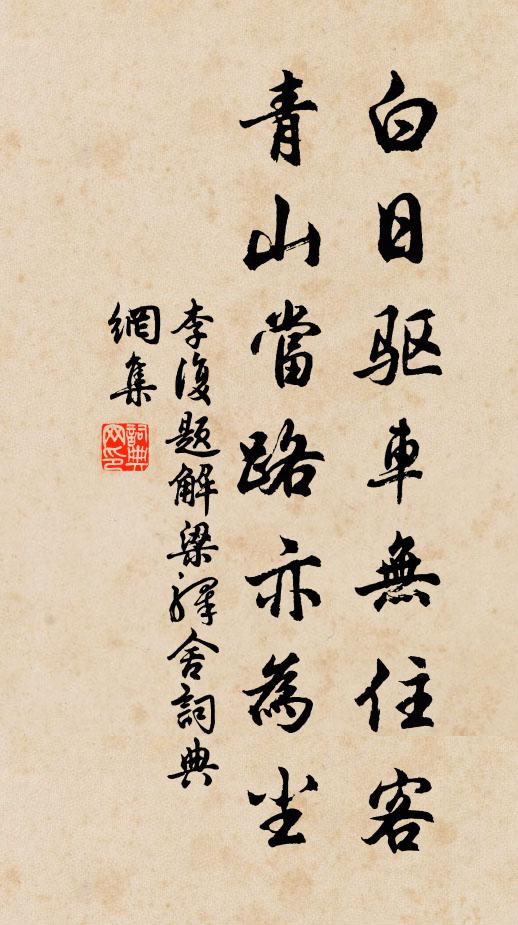 白日驱車無住客
青山當路亦為尘
李復題解梁驛舍詞典
網集
詞典
网印